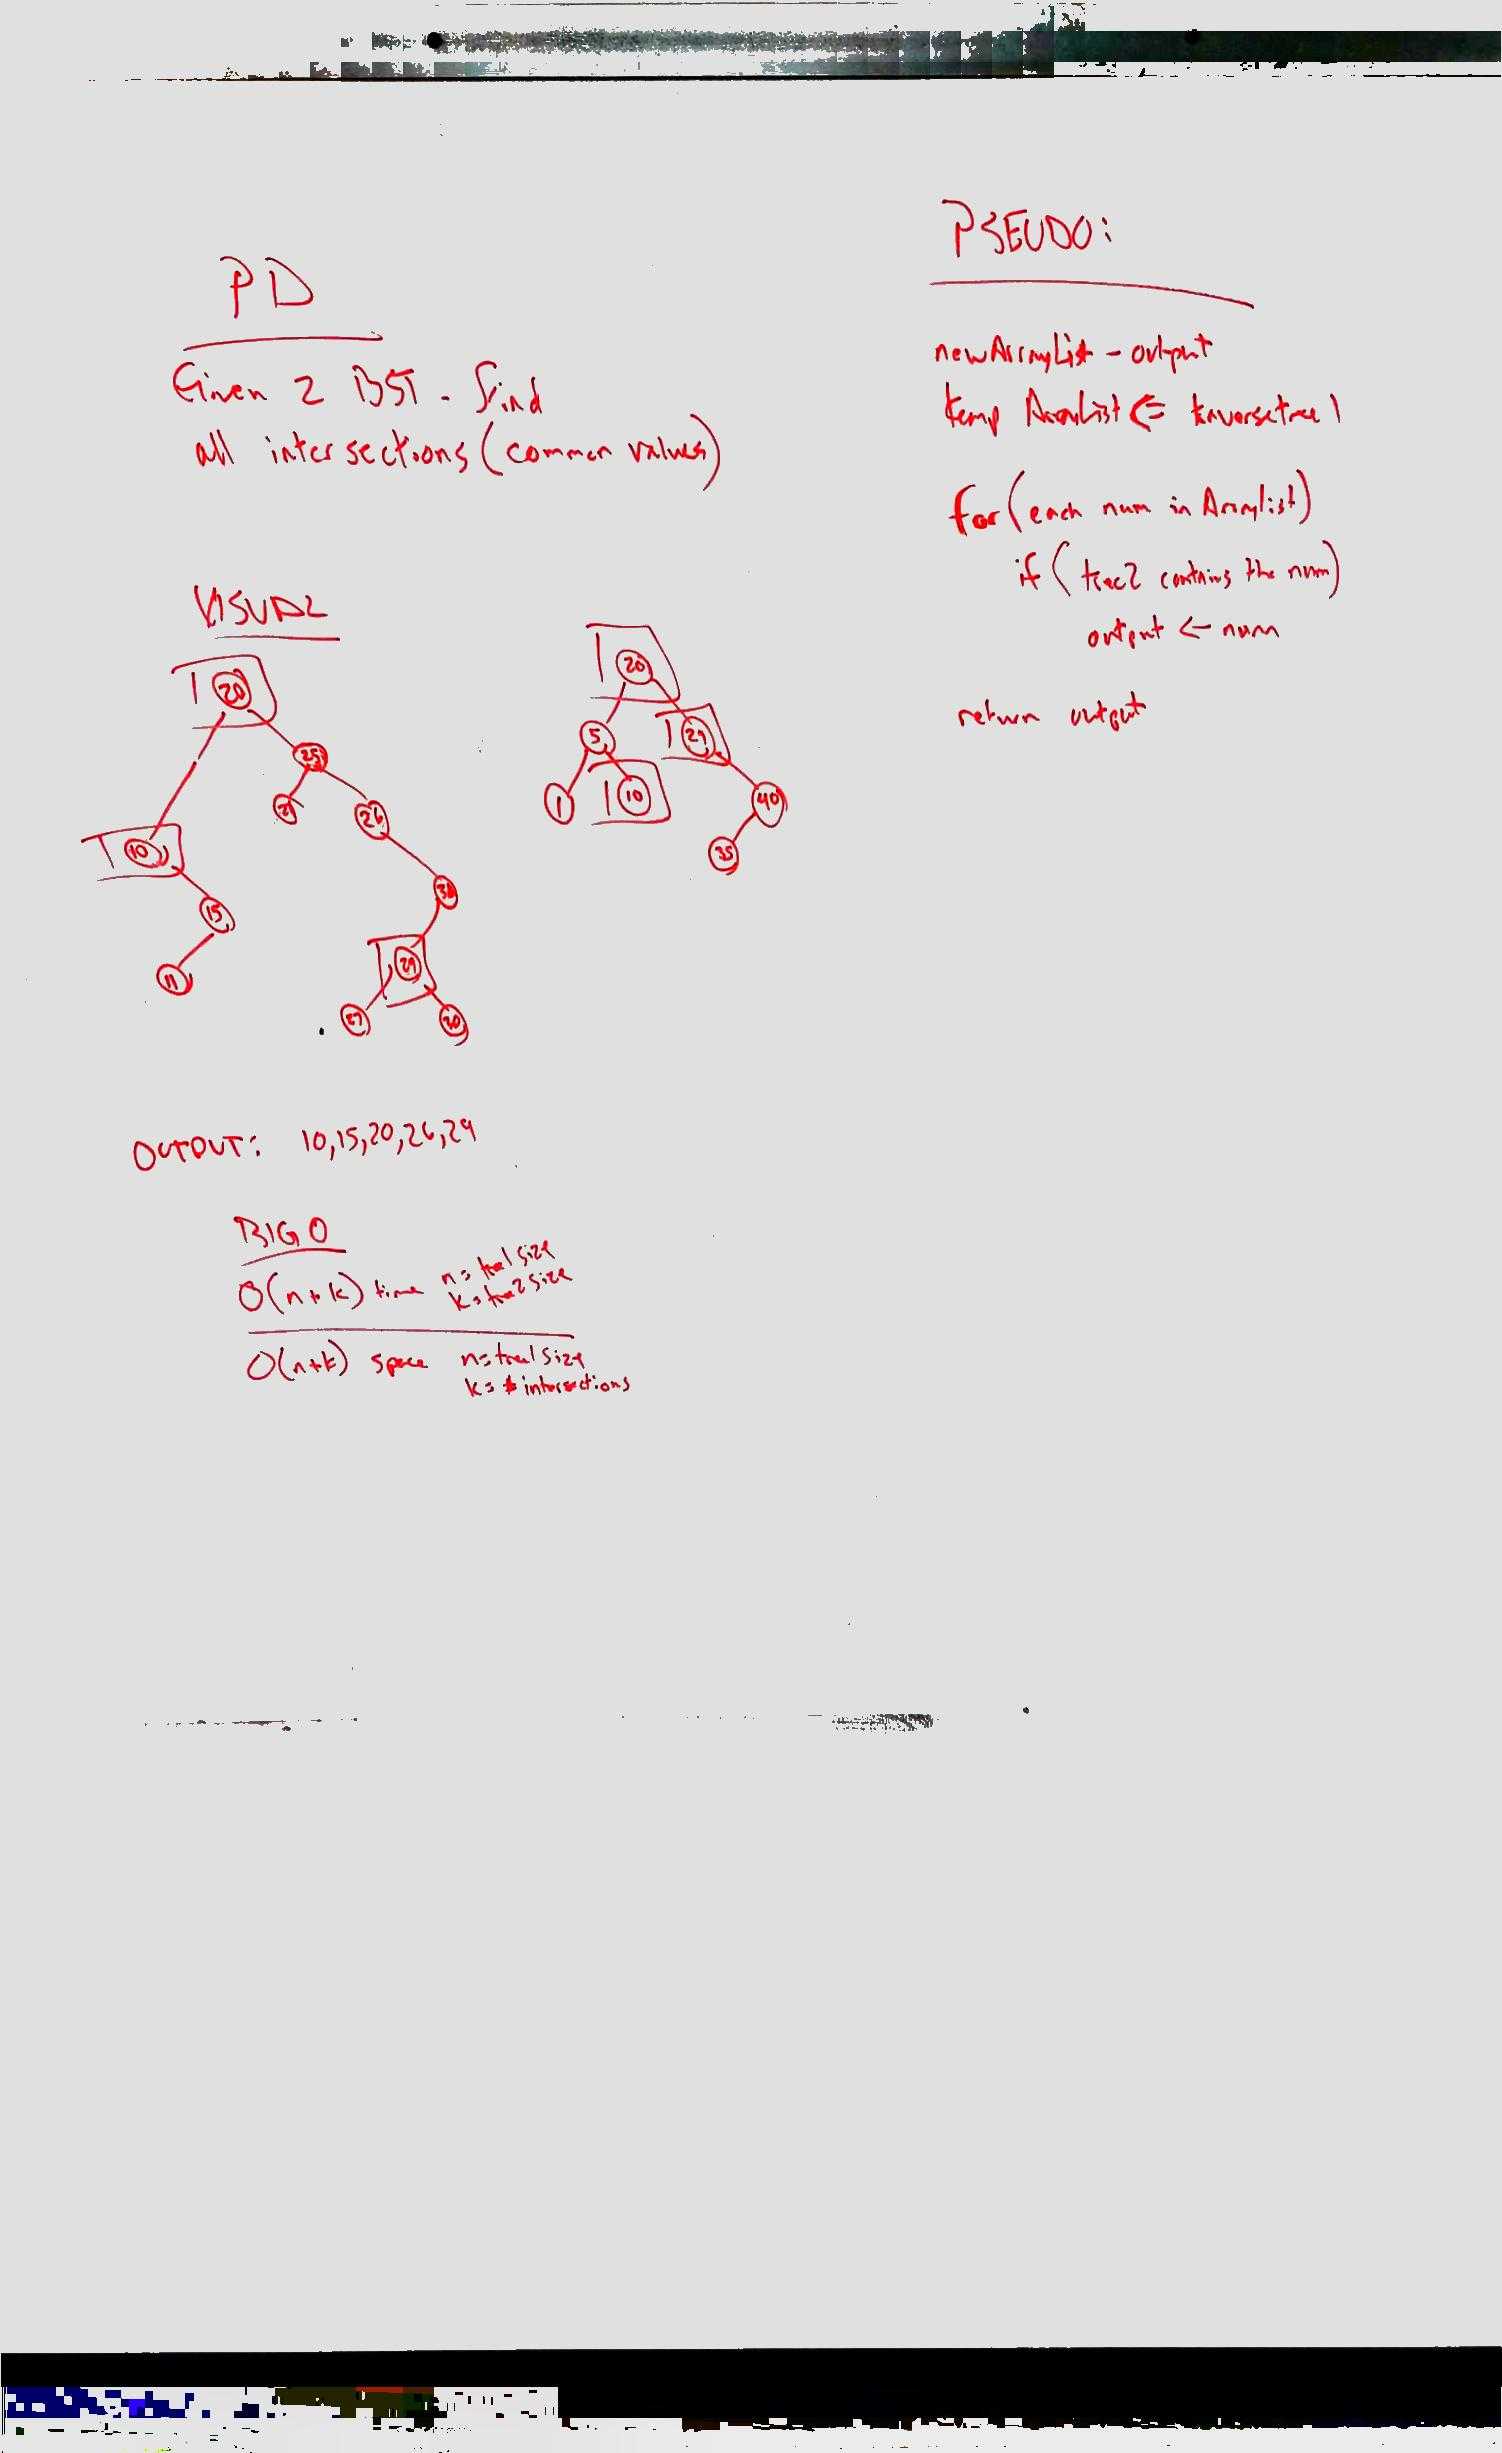 PD
Given 2 BST - find
all intersections (common values)
VISUAL
20
25
21
26
10
15
11
38
29
27
30
20
5
29
1
10
40
35
OUTPUT: 10,15,20,26,29
BIG O
O(n+k) time n = tree1 size
k = tree2 size
O(n+k) space n = tree1 size
k = # intersections
PSEUDO:
new ArrayList - output
temp ArrayList <= traversetree1
for (each num in Arraylist)
if (tree2 contains the num)
output <- num
return output